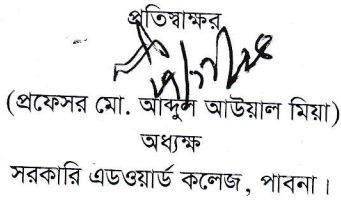 প্রতিস্বাক্ষর
(প্রফেসর মো. আব্দুল আউয়াল মিয়া)
অধ্যক্ষ
সরকারি এডওয়ার্ড কলেজ, পাবনা।